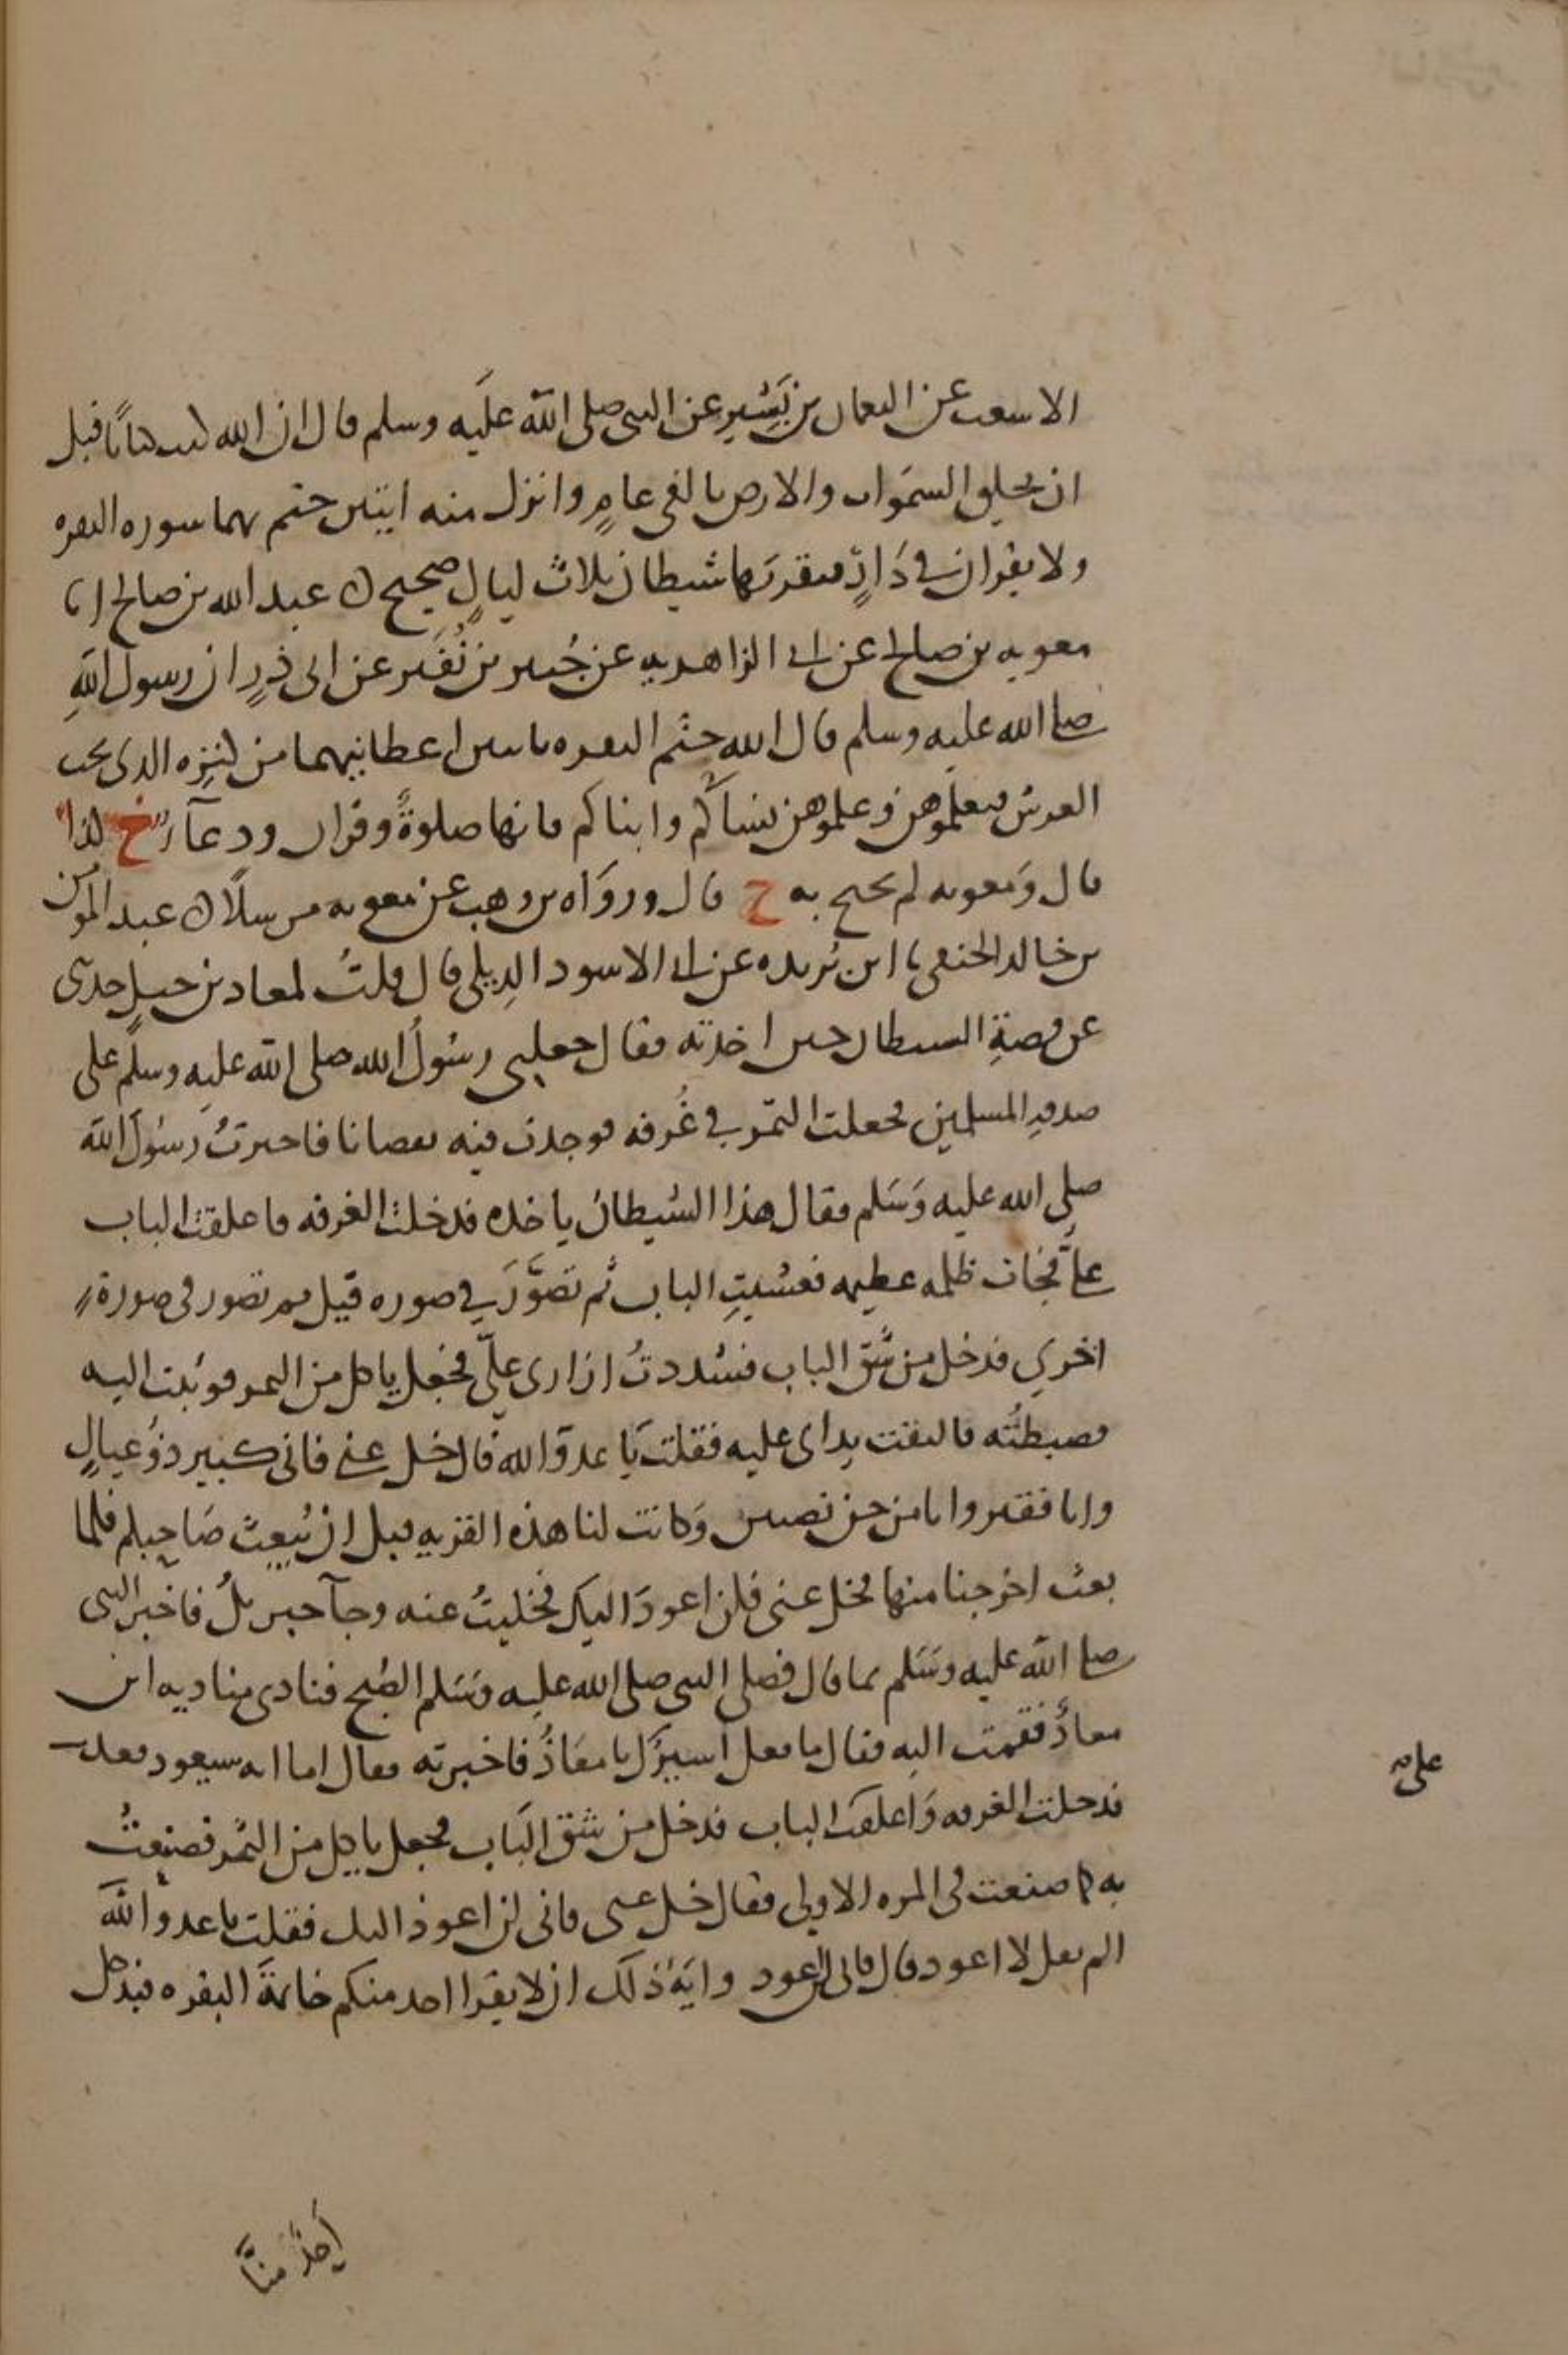 الاشعث عن النعمان بن بَشِيرٍ عن النبى صلى الله عليه وسلم قال ان الله كتب كتابًا قبل
ان يخلق السموات والارض بالفى عامٍ وانزل منه ايتين ختم بهما سوره البقره
ولا يقران فى دَارٍ فيقربَها شيطان ثلاث ليالٍ صحيح ن عبد الله بن صالح انا
معويه بن صالح عن ابى الزاهديه عن جُبير بن نُفَير عن ابى ذرٍ ان رسول اللهِ
صلى الله عليه وسلم قال ان الله ختم البقره بايتين اعطانيهما من كنزه الذى تحت
العرش فتعلموهن وعلموهن نساَكم وابناكم فانها صلوةٌ وقران ودعآ خ كذا
قال وَمعويه لم يحتج به خ قال ورواه بن وهب عن معويه مرسلاً ن عبد المؤمن
بن خالد الحنفى نا ابن بُريده عن ابى الاسود الدِيلى قال قلتُ لمعاذ بن جبلٍ حدثنى
عن قصةِ الشيطان حين اخذته فقال جعلنى رسُولُ الله صلى الله عليه وسلم على
صدقهِ المسلمين فجعلت التمر فى غُرفه فوجدت فيه نقصانا فاخبرتُ رسُولَ الله
صلى الله عليه وَسَلم فقال هذا الشيطانُ ياخذه فدخلت الغرفه فاغلقت الباب
علىَّ فجات ظلمه عظيمه فغشيتِ الباب ثم تصَوَّرَ فى صوره فيل ثم تصور فى صورة
اخرى فدخل من شَق الباب فشددتُ ازارى علىّ فجعل ياكل من التمر فوثبت اليه
فضبطتُه فالتفت يداى عليه فقلت يَا عدوَّ الله قال خل عنى فانى كبير ذوُ عيالٍ
وانا فقير وانا من جن نصيبين وَكانت لنا هذه القريه قبل ان يُبعث صَاحبكم فلما
بعث اخرجنا منها فخل عنى فلن اعودَ اليك فخليتُ عنه وجآ جبريلُ فاخبر النبى
صلى الله عليه وسَلم بما قال فصلى النبى صلى الله عليه وسَلم الصُبح فنادى مناديه اين
معاذٌ فقمت اليه فقال ما فعل اسيرُك يا معَاذُ فاخبرته فقال اما انه سيعود فعد
فدخلت الغرفه وَاغلقت الباب فدخل من شق البَاب فجعل ياكل من التمر فصنعتُ
به كما صنعت فى المره الاولى فقال خل عنى فانى لن اعود اليك فقلت يا عدو الله
الم تقل لا اعود قال فانى لن اعود وايَةُ ذلك ان لا يقرا احد منكم خاتمةَ البقره فيدخل
عليه
أحدٌ منَّا